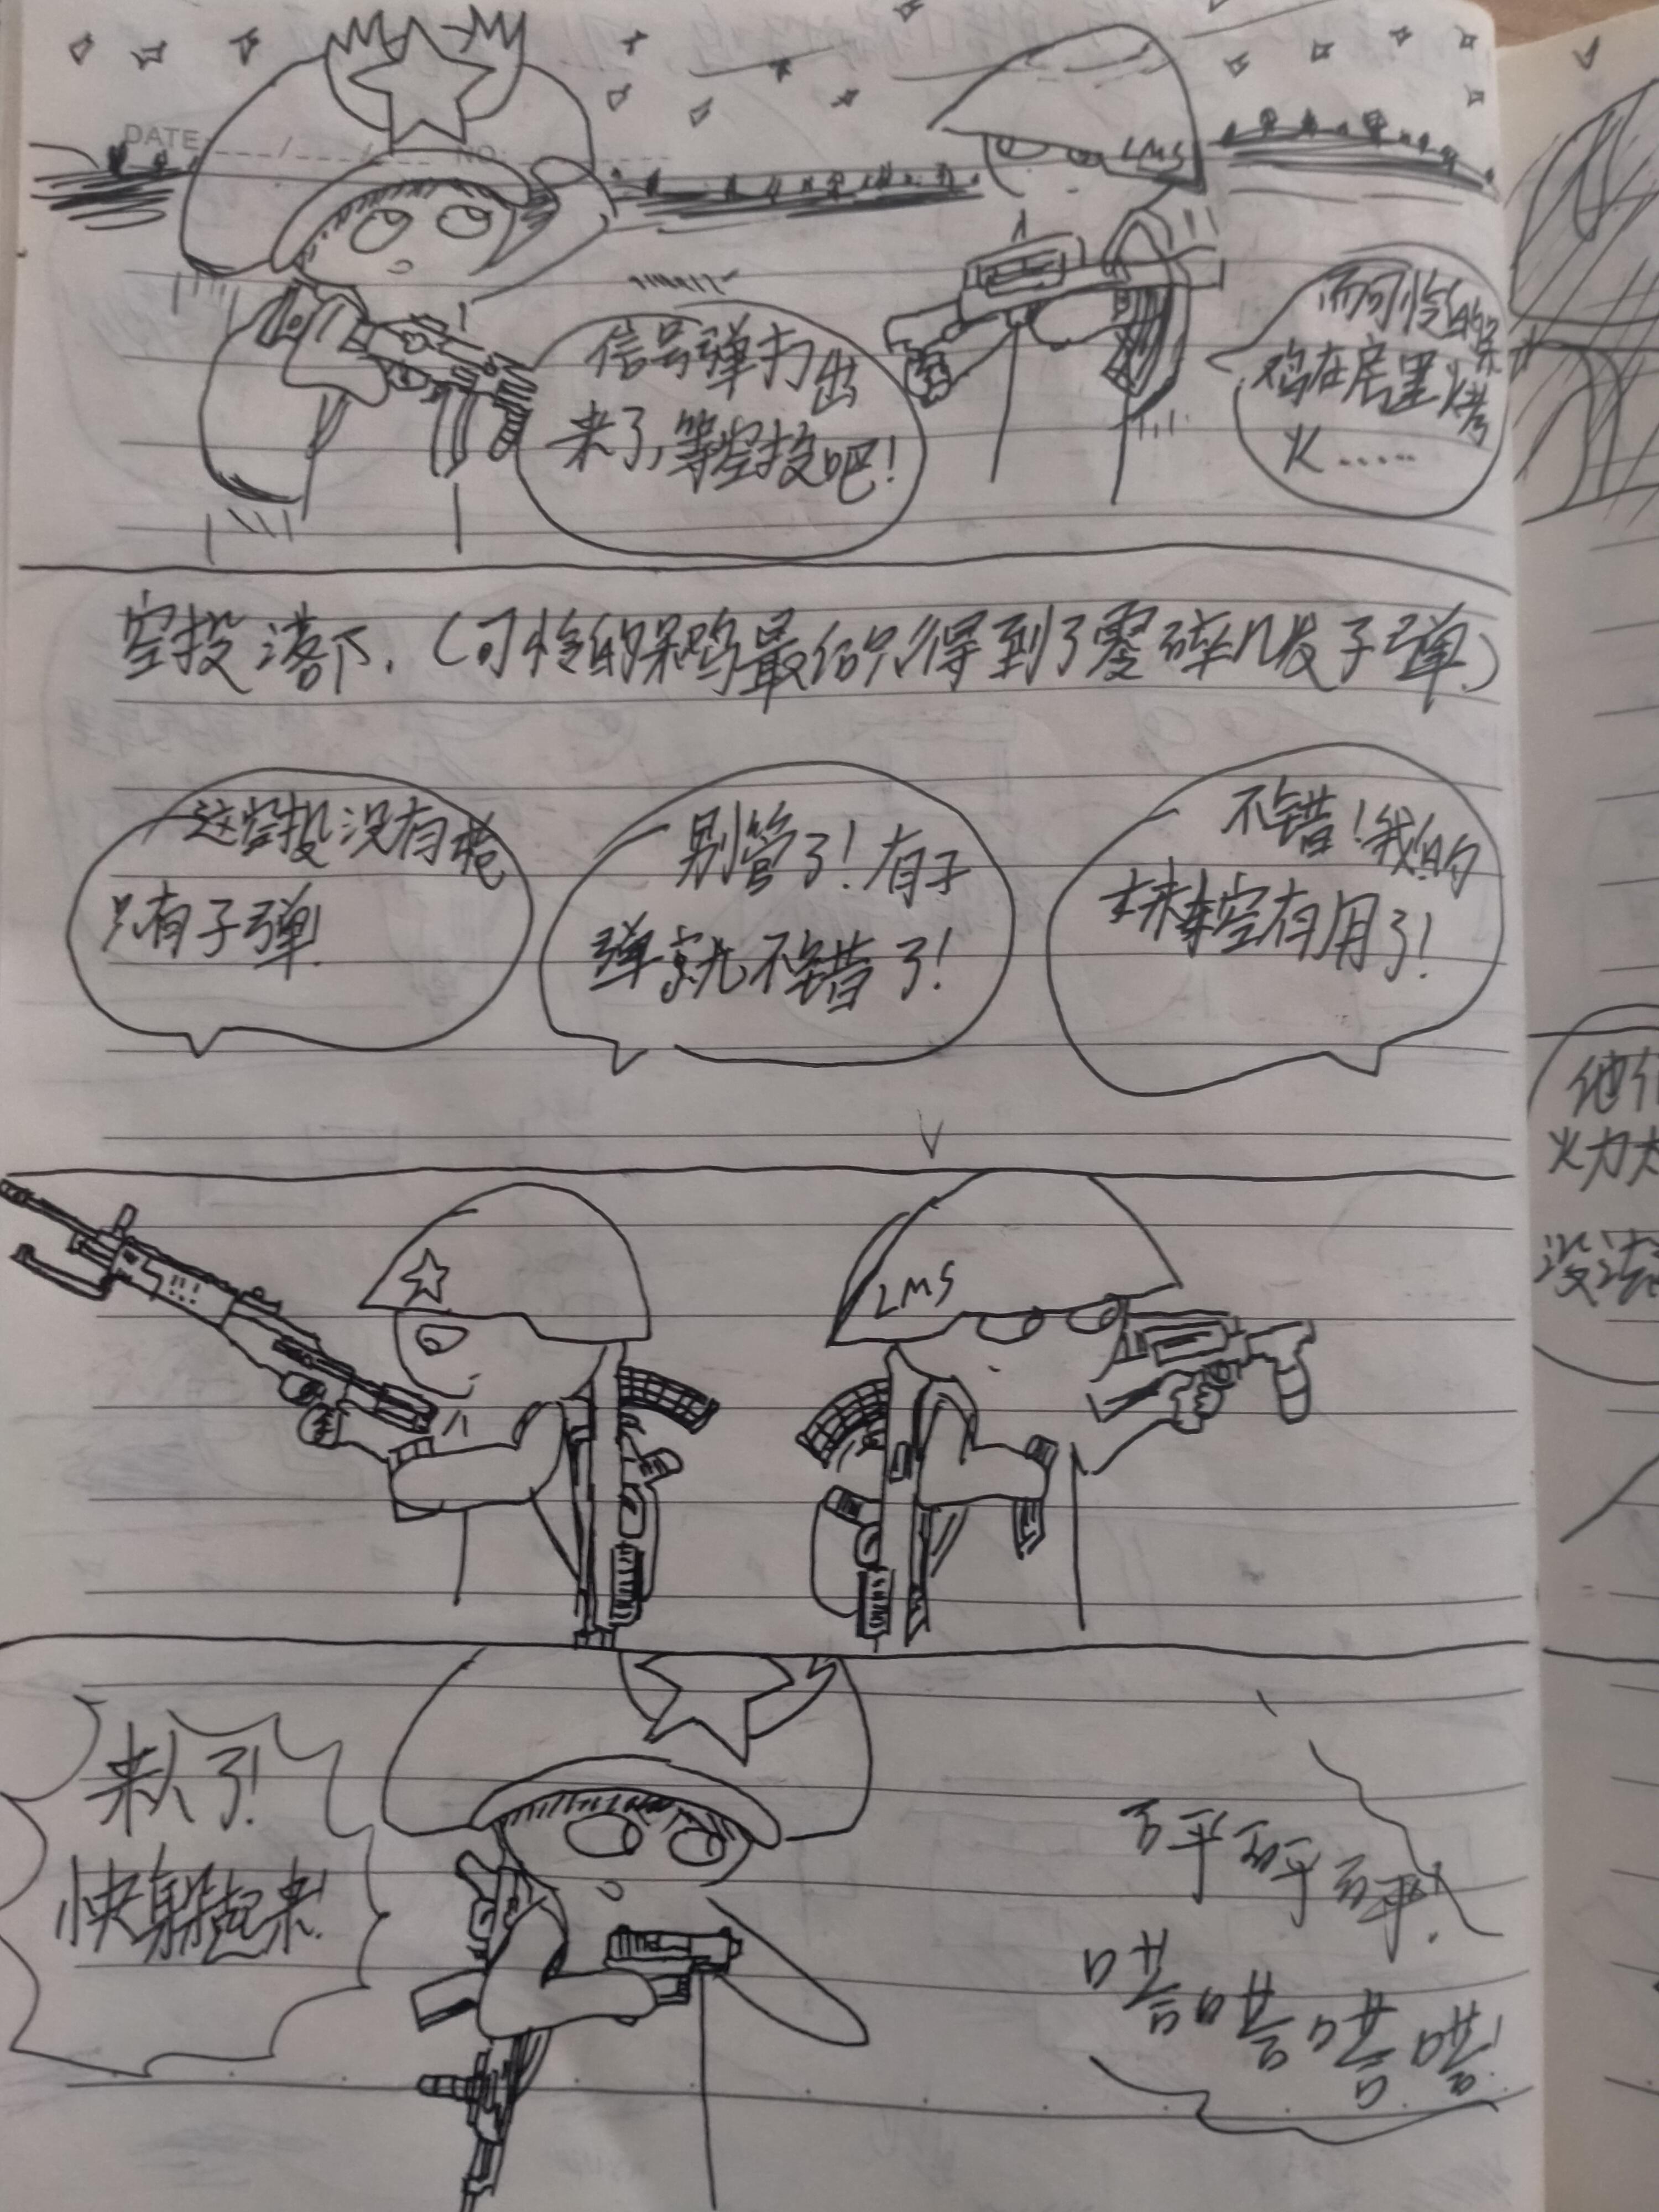 DATE / / NO.
LMS
信号弹打出
来了,等空投吧!
而可怜的呆
鸡在房里烤
火……
空投落下.(可怜的呆鸡最后只得到了零碎几发子弹.)
这空投没有枪
只有子弹.
别管了!有子
弹就不错了!
不错!我的
末空有用了!
LMS
来人了!
快躲起来!
砰砰砰!
嗒嗒嗒嗒!
火力
没法